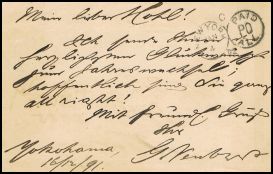 Mein lieber Kohl!
Ich sende Ihnen
herzlichsten Glückwunsch
zum Jahreswechsel;
hoffentlich sind Sie ganz
all right!
Mit freundl. Gruß
Ihr
Yokohama
16/12/91.
PAID
ALL